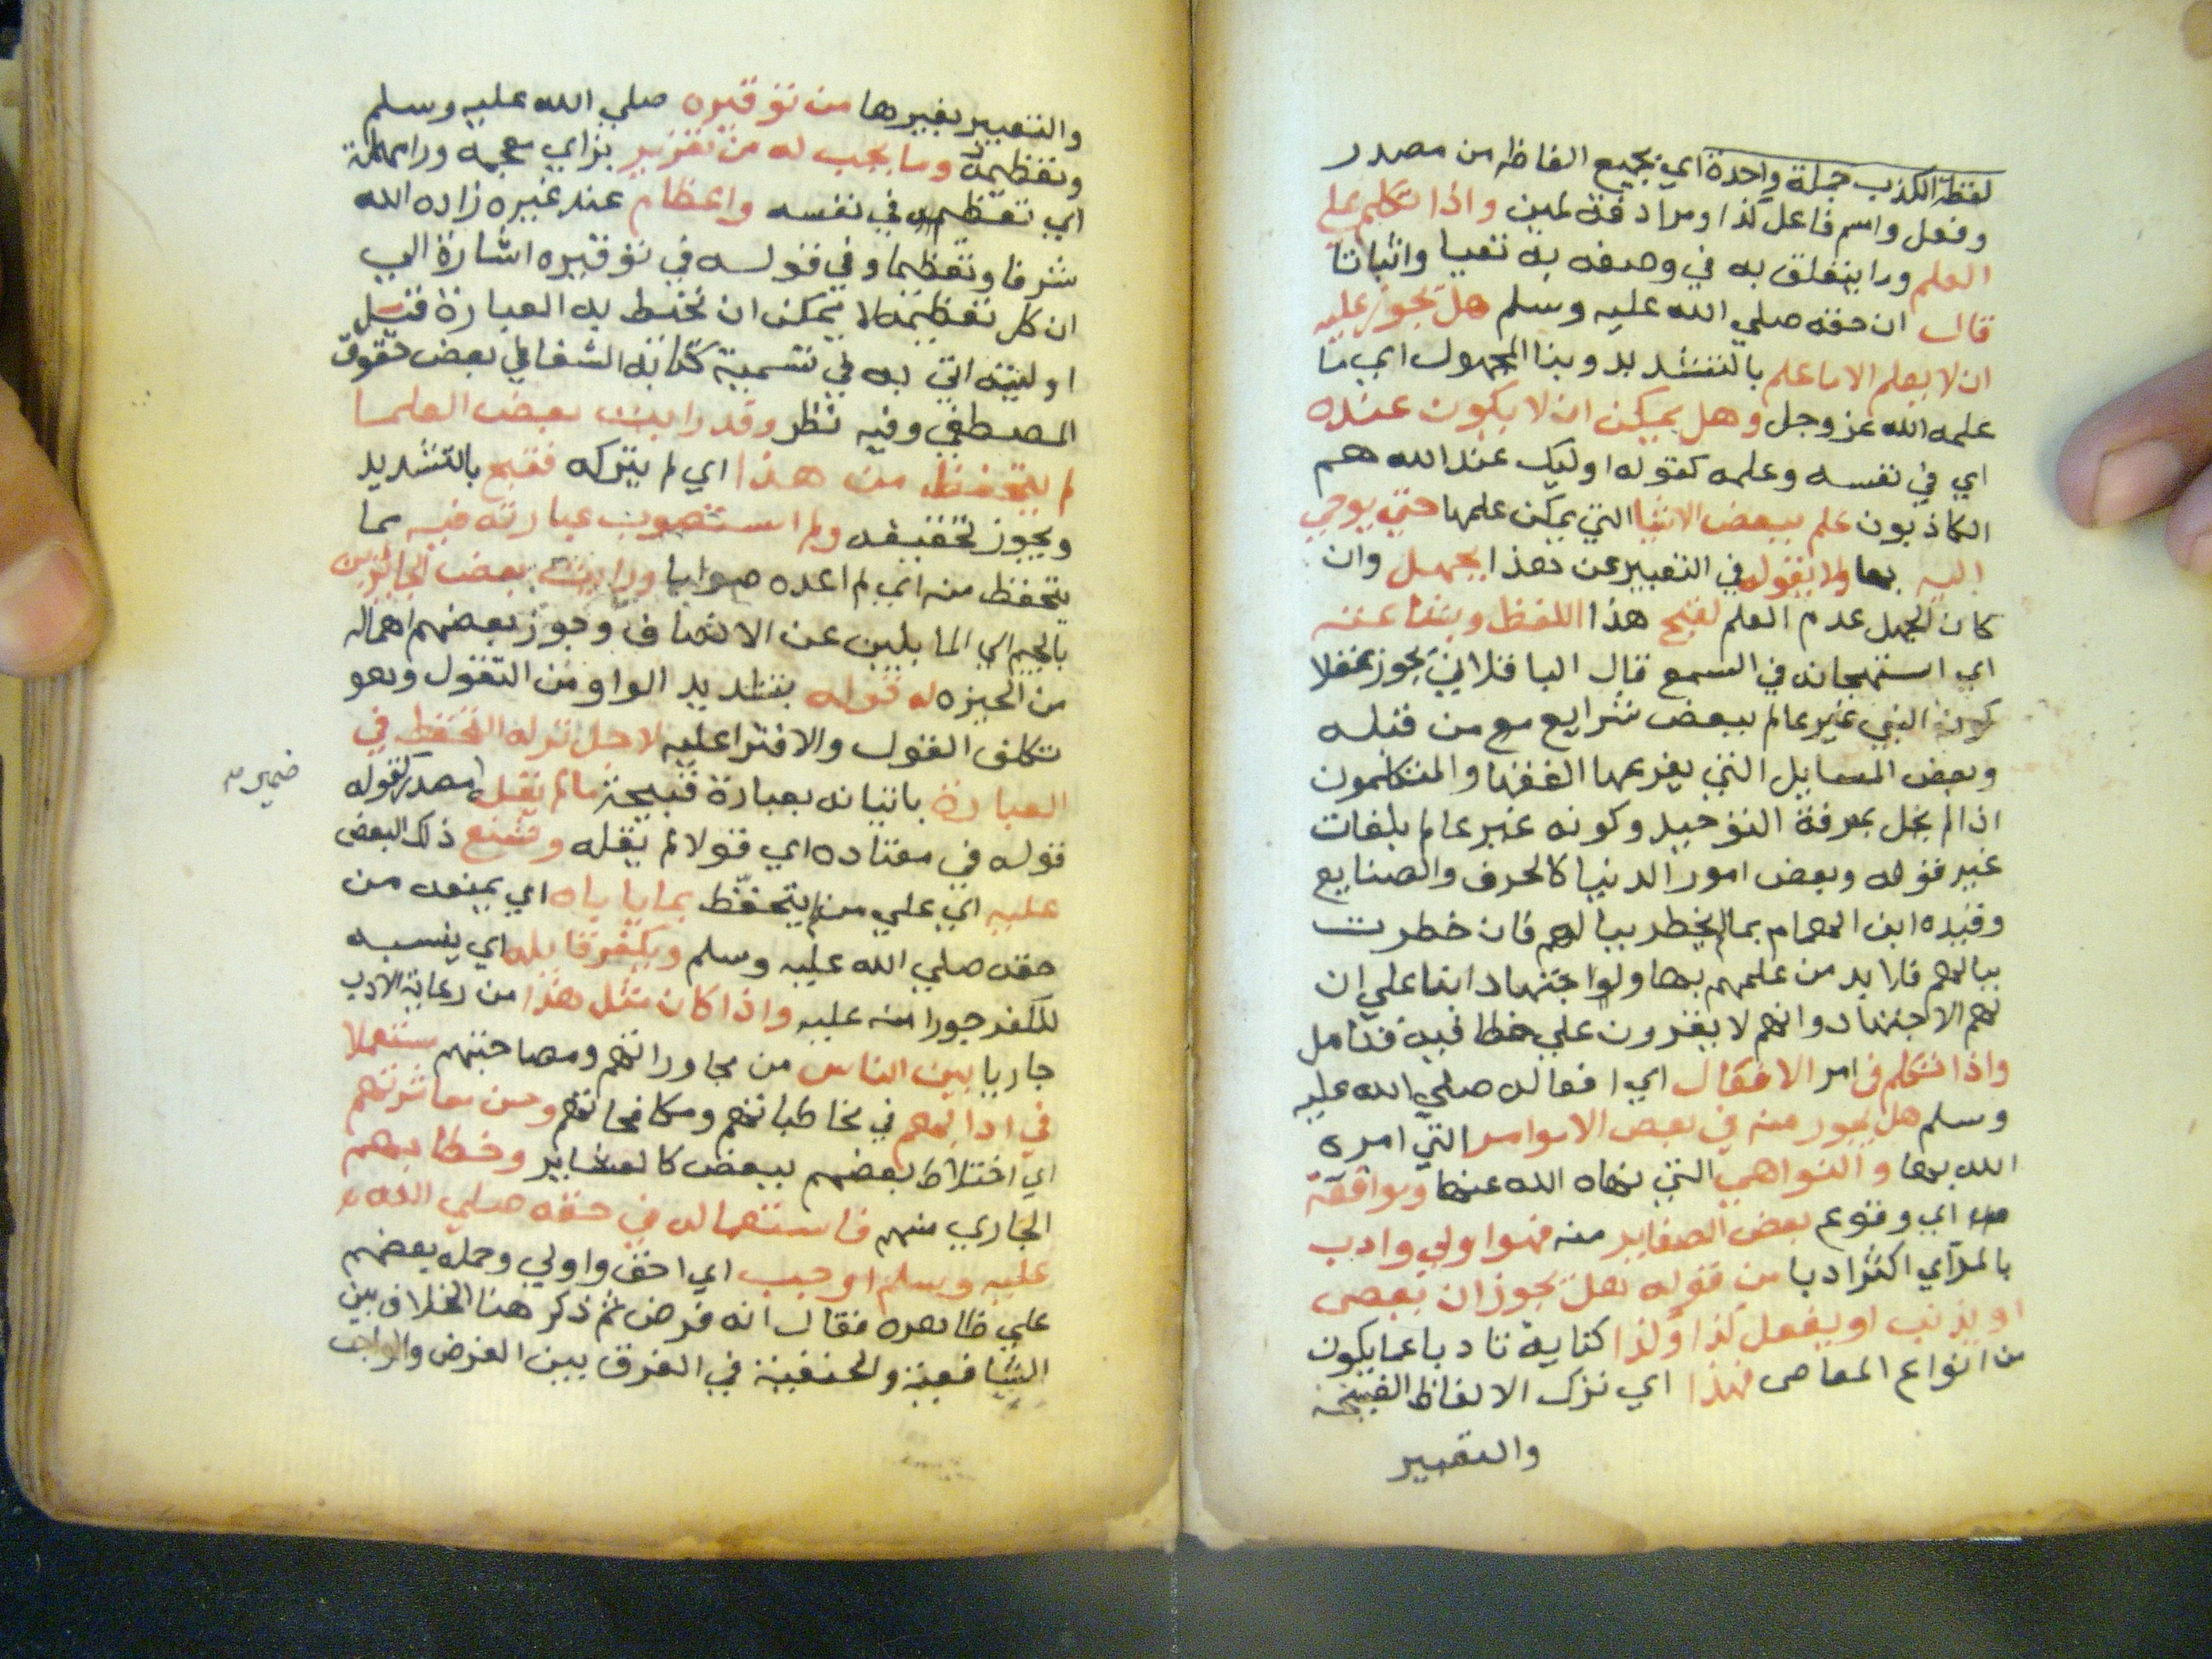 لفظة الكذب جملة واحدة اي بجميع الفاظه من مصدر
وفعل واسم فاعل كذا ومرادفة لمين واذا تكلم علي
العلم وما يتعلق به في وصفه به نفيا واثباتا
قال ان حقه صلي الله عليه وسلم هل يجوز عليه
ان لا يعلم الا ما علم بالتشديد وبنا المجهول اي ما
علمه الله عز وجل وهل يمكن ان لا يكون عنده
اي في نفسه وعلمه كقوله اوليك عند الله هم
الكاذبون علم ببعض الاشيا التي يمكن علمها حتي يوحي
اليه بها ولا يقوله في التعبير عن هذا بجهل وان
كان الجهل عدم العلم لقبح هذا اللفظ وبشاعته
اي استهجانه في السمع قال الباقلاني يجوز عقلا
كون النبي غير عالم ببعض شرايع من قبله
وبعض المسايل التي يفرعها الفقها والمتكلمون
اذا لم يخل بمعرفة التوحيد وكونه غير عالم بلغات
غير قومه وبعض امور الدنيا كالحرف والصنايع
وقيده ابن الهمام بما لم يخطر ببالهم فان خطرت
ببالهم فلا بد من علمهم بها ولو اجتهادا بنا علي ان
لهم الاجتهاد وانهم لا يقرون علي خطا فيه فتامل
واذا تكلم في امر الافعال اي افعاله صلي الله عليه
وسلم هل يجوز منه في بعض الاوامر التي امره
الله بها والنواهي التي نهاه الله عنها ومواقعة
اي وقوع بعض الصغاير منه فهو اولي وادب
بالمد اي اكثر ادبا من قوله هل يجوز ان يعصي
او يذنب او يفعل كذا وكذا كناية تادبا عما يكون
من انواع المعاصي فهذا اي ترك الالفاظ القبيحة
والتعبير
والتعبير بغيرها من توقيره صلي الله عليه وسلم
وتعظيمه وما يجب له من تعزير بزاي معجمة ورا مهملة
اي تعظيمه في نفسه واعظام عند غيره زاده الله
شرفا وتعظيما وفي قوله في توقيره اشارة الي
ان كل تعظيمه لا يمكن ان تحيط به العبارة قيل
اوليته اتي به في تسمية كتابه الشفا في بعض حقوق
المصطفي وفيه نظر وقد رايت بعض العلما
لم يتحفظ من هذا اي لم يتركه فقبح بالتشديد
ويجوز تخفيفه ولم استصوب عبارته فيه مما
يتحفظ منه اي لم اعده صوابا ورايت بعض الجائرين
بالجيم اي المايلين عن الانصاف وجوز بعضهم اهماله
من الحيرة له قوله بتشديد الواو من التقول وهو
تكلف القول والافترا عليه لاجل تركه التحفظ في
العبارة باتيانه بعبارة قبيحة ما لم يقل مصدر كقوله
ضمير مه
قوله في معتاده اي قولا لم يقله وشنع ذلك البعض
عليه اي علي من لم يتحفظ بما ياباه اي يمنعه من
حقه صلي الله عليه وسلم ويكفر قايله اي ينسبه
للكفر جورا منه عليه واذا كان مثل هذا من رعاية الادب
جاريا بين الناس من مجاوراتهم ومصاحبتهم مستعملا
في ادابهم في مخاطباتهم ومكافحاتهم وحسن معاشرتهم
اي اختلاط بعضهم ببعض كالعشاير وخطابهم
الجاري منهم فاستعماله في حقه صلي الله
عليه وسلم اوجب اي احق واولي وحمله بعضهم
علي ظاهره فقال انه فرض ثم ذكر هنا الخلاف بين
الشافعية والحنفية في الفرق بين الفرض والواجب